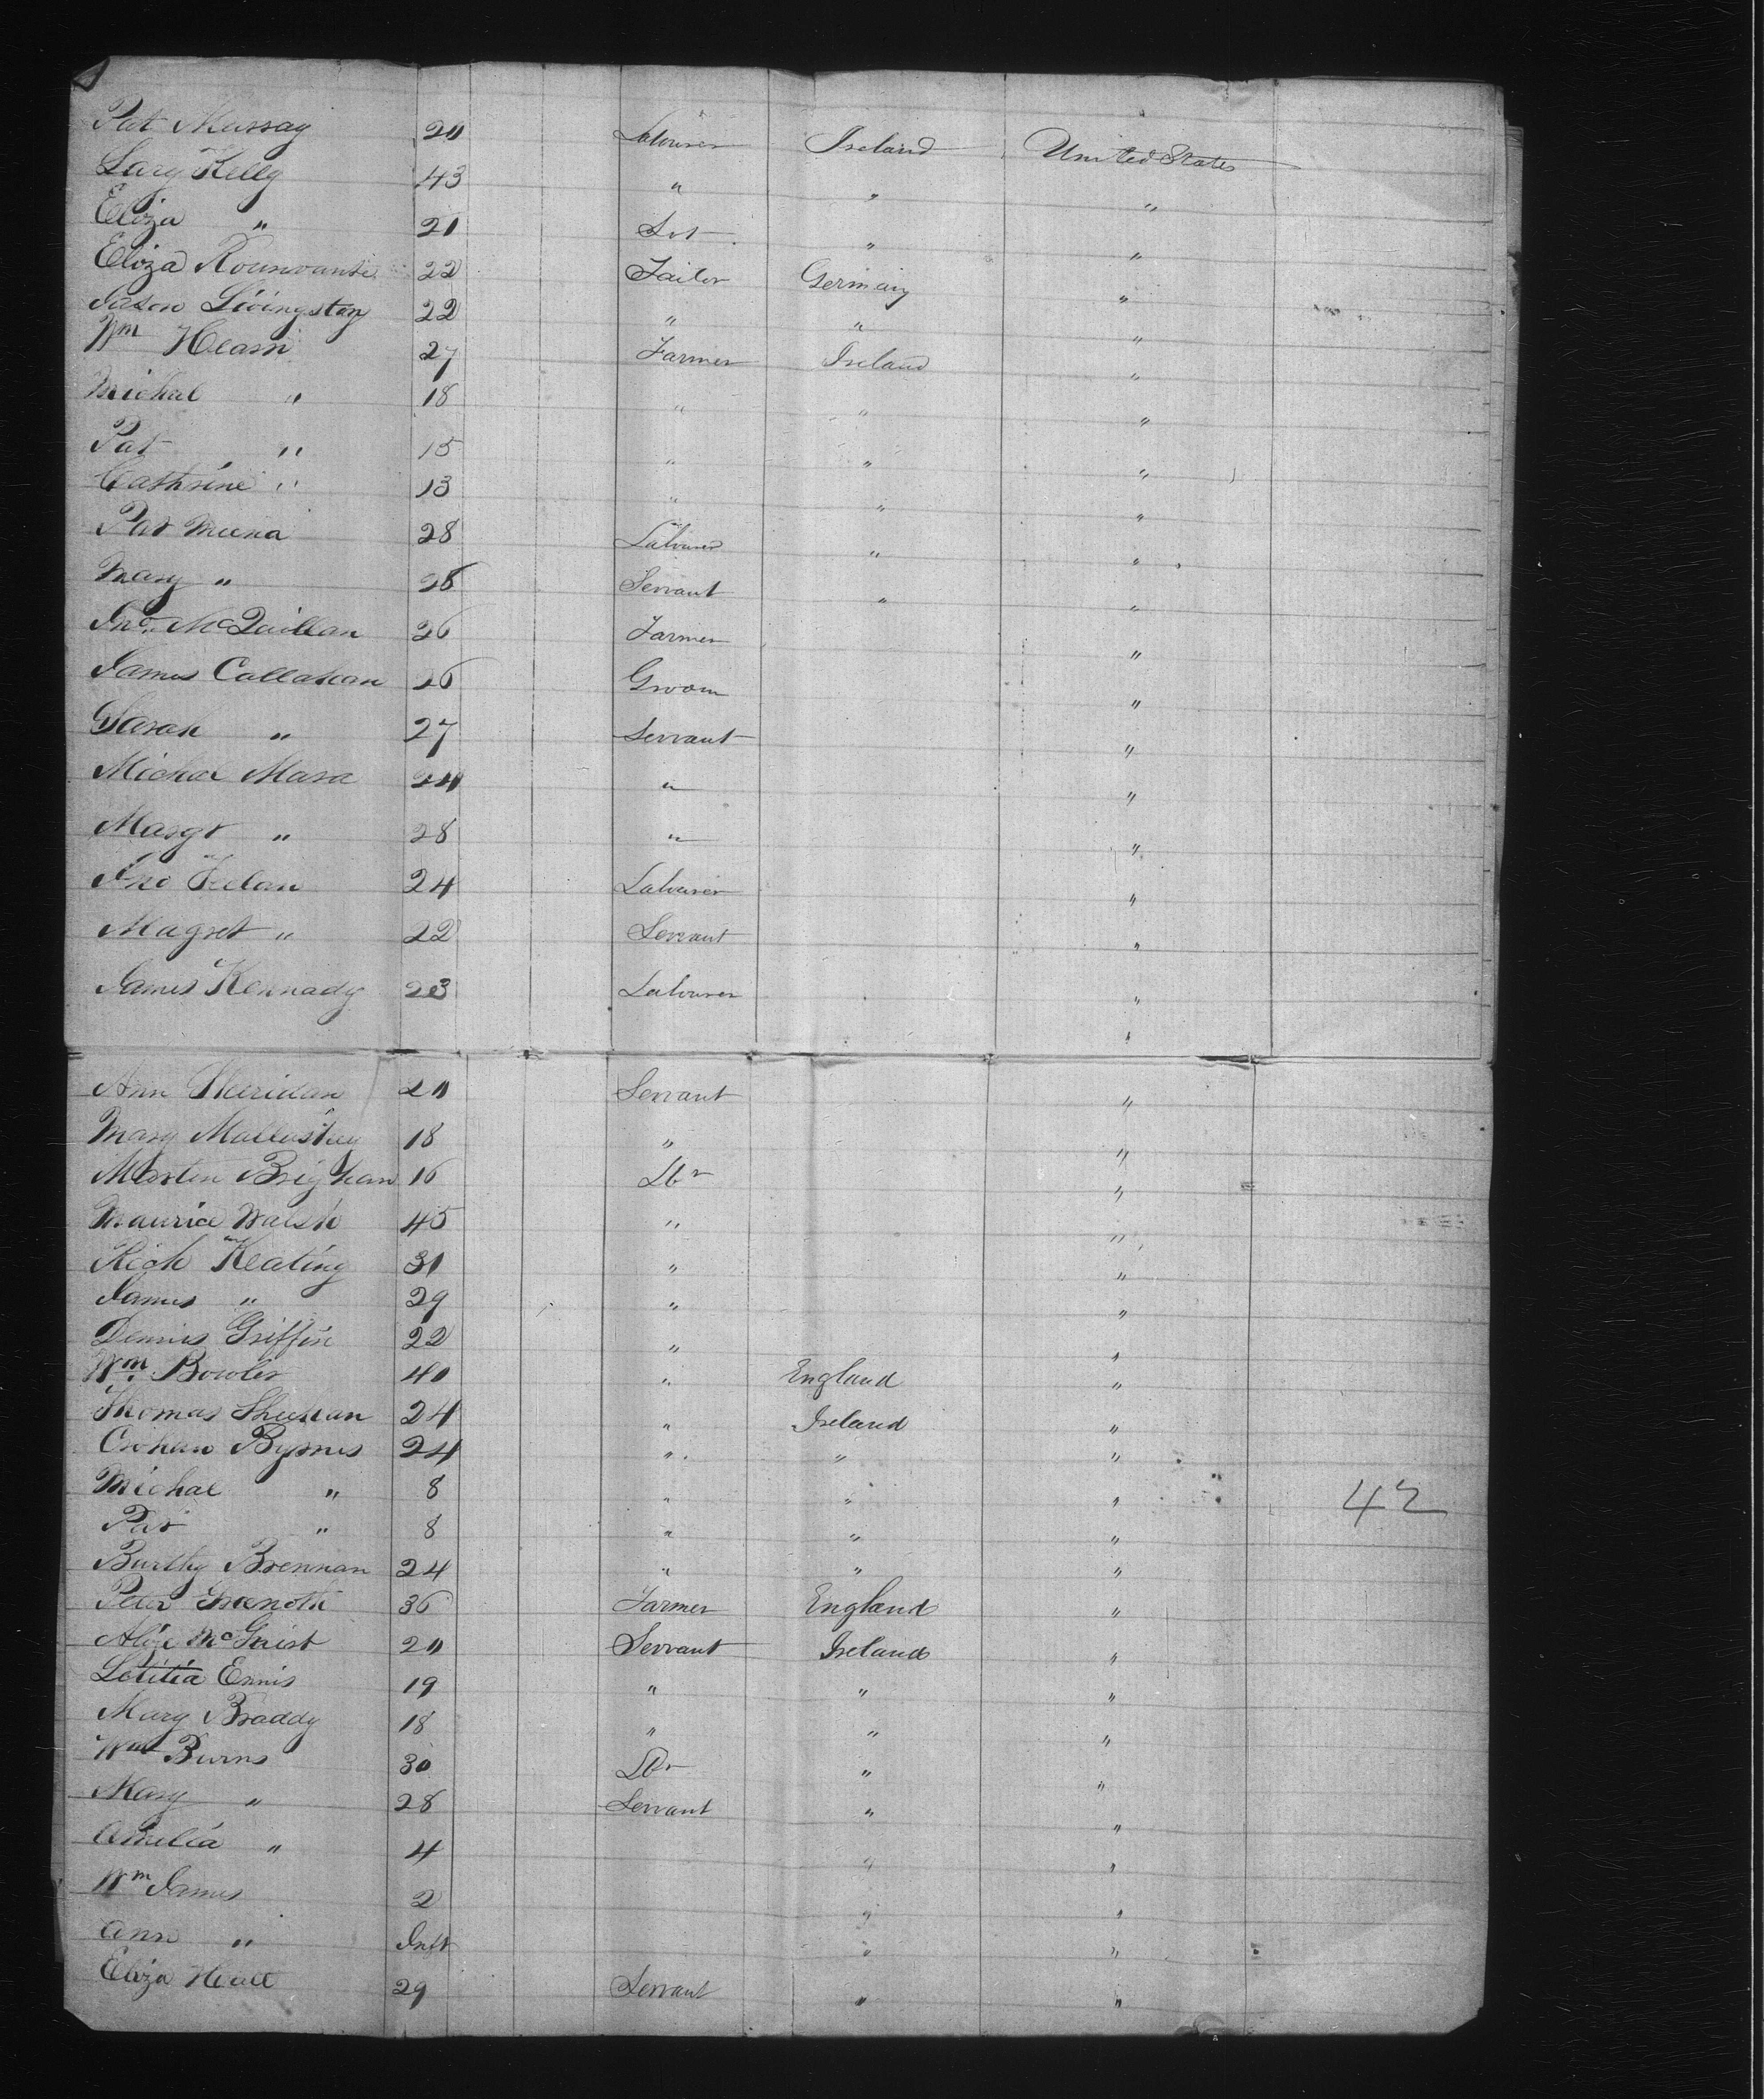 Pat Murray 20 Labourer Ireland United States
Lary Kelly 43 " " "
Eliza " 21 Svt " "
Eliza 22 Tailor Germany "
Jason Livingston 22 " " "
Wm Hearn 27 Farmer Ireland "
Michal " 18 " " "
Pat " 15 " " "
Cathrine " 13 " " "
Pat Meena 28 Labourer " "
Mary " 26 Servant " "
Jno. McQuillan 26 Farmer "
James Callahan 26 Groom "
Sarah " 27 Servant "
Michal Mara 24 " "
Margt " 28 " "
Jno 24 Labourer "
Magret " 22 Servant "
James Kennady 23 Labourer "
"
Ann Sheridan 20 Servant "
Mary 18 " "
Martin Brighan 16 Lbr "
Maurice Walsh 45 " "
Rich Keating 31 " "
James " 29 " "
Dennis Griffin 22 " "
Wm. Bowler 40 " England "
Thomas Sheehan 24 " Ireland "
Byrnes 24 " " "
Michal " 8 " " " 42
Pat " 8 " " "
Barthy Brennan 24 " " "
Peter 36 Farmer England "
Alice 20 Servant Ireland "
Letitia Ennis 19 " " "
Mary Braddy 18 " " "
Wm Burns 30 Lbr " "
Mary " 28 Servant " "
Amelia " 4 " "
Wm James 2 " "
Ann " Inft " "
Eliza 29 Servant " "